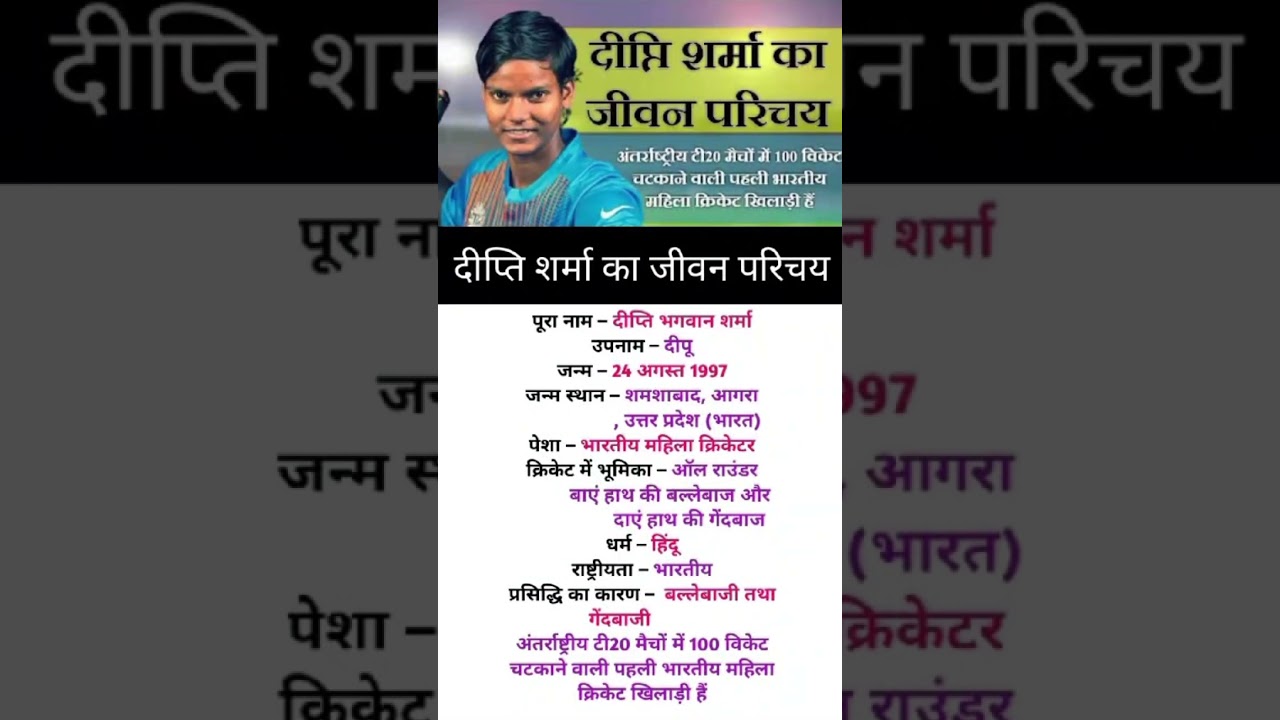 दीप्ति शर्मा का
जीवन परिचय
अंतर्राष्ट्रीय टी20 मैचों में 100 विकेट
चटकाने वाली पहली भारतीय
महिला क्रिकेट खिलाड़ी हैं
दीप्ति शर्मा का जीवन परिचय
पूरा नाम – दीप्ति भगवान शर्मा
उपनाम – दीपू
जन्म – 24 अगस्त 1997
जन्म स्थान – शमशाबाद, आगरा
, उत्तर प्रदेश (भारत)
पेशा – भारतीय महिला क्रिकेटर
क्रिकेट में भूमिका – ऑल राउंडर
बाएं हाथ की बल्लेबाज और
दाएं हाथ की गेंदबाज
धर्म – हिंदू
राष्ट्रीयता – भारतीय
प्रसिद्धि का कारण – बल्लेबाजी तथा
गेंदबाजी
अंतर्राष्ट्रीय टी20 मैचों में 100 विकेट
चटकाने वाली पहली भारतीय महिला
क्रिकेट खिलाड़ी हैं